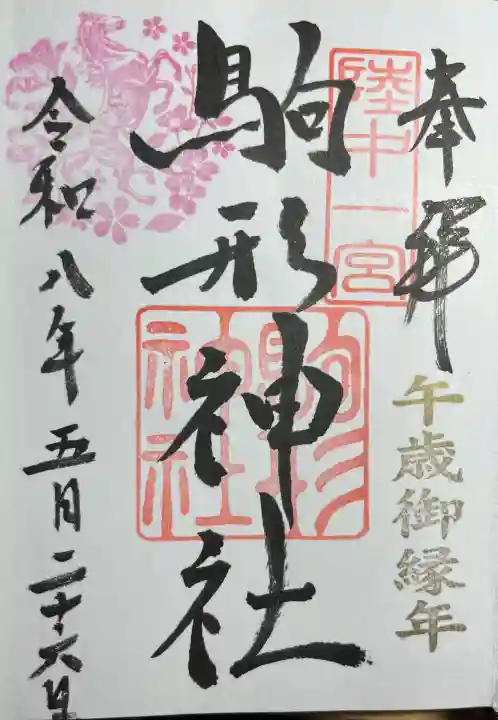 奉拝
陸中一宮
午歳御縁年
駒形神社
駒形神社
令和八年五月二十六日